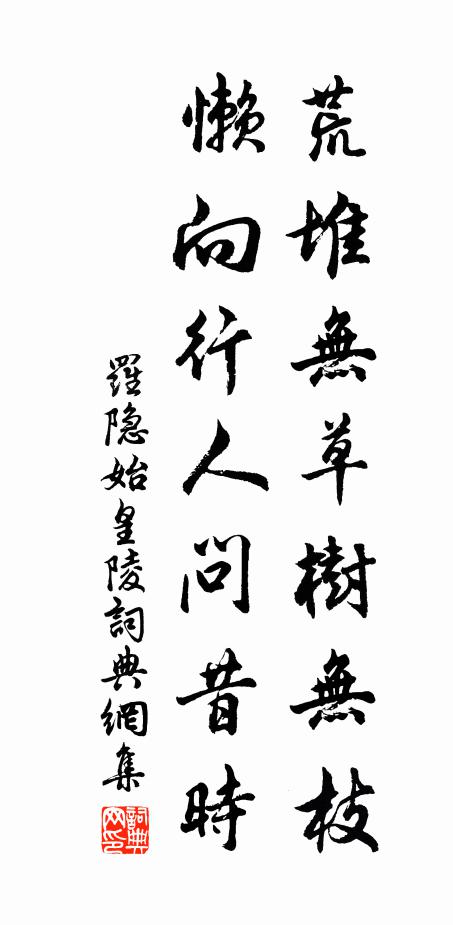 荒堆無草樹無枝
懒向行人問昔時
羅隐始皇陵詞典網集
詞典网印